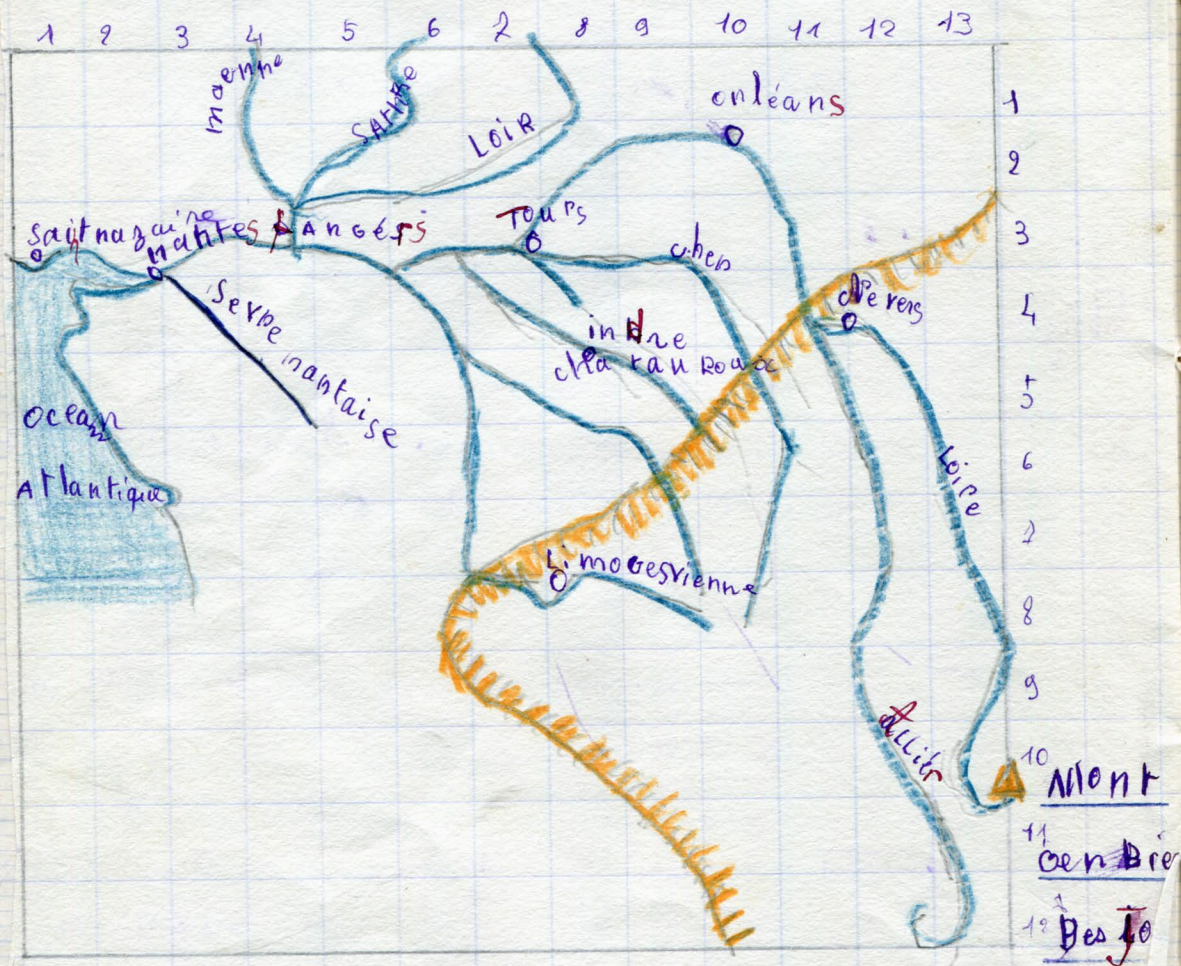 1 2 3 4 5 6 7 8 9 10 11 12 13
maenne
SArthe
LOIR
orléans
1
2
Saitnazaire
nantes
Angérs
Tours
cher
3
Nevers
4
Sevre nantaise
indre
chatauRoux
5
Ocean
Atlantique
Loire
6
7
Limoges
vienne
8
9
allier
10
Mont
11
GenBie
12
Des Jo